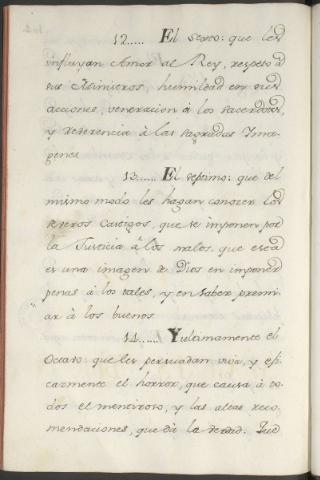 12..... El Sexto: que les
influyan Amor al Rey, respeto á
sus Ministros, humildad en sus
acciones, veneracion á los Sacerdotes,
y Reverencia à las sagradas Ima-
genes
13...... El septimo: que del
mismo modo les hagan conocer los
severos Castigos, que se imponen por
la Justicia à los malos, que
es una imagen de Dios en imponer
penas à los tales, y en saber premi-
ar à los buenos
14...... Y ultimamente el
Octavo: que les persuadan viva, y efi-
cazmente el horror, que causa à to-
dos el mentiroso, y las altas reco-
mendaciones, que dà la verdad.